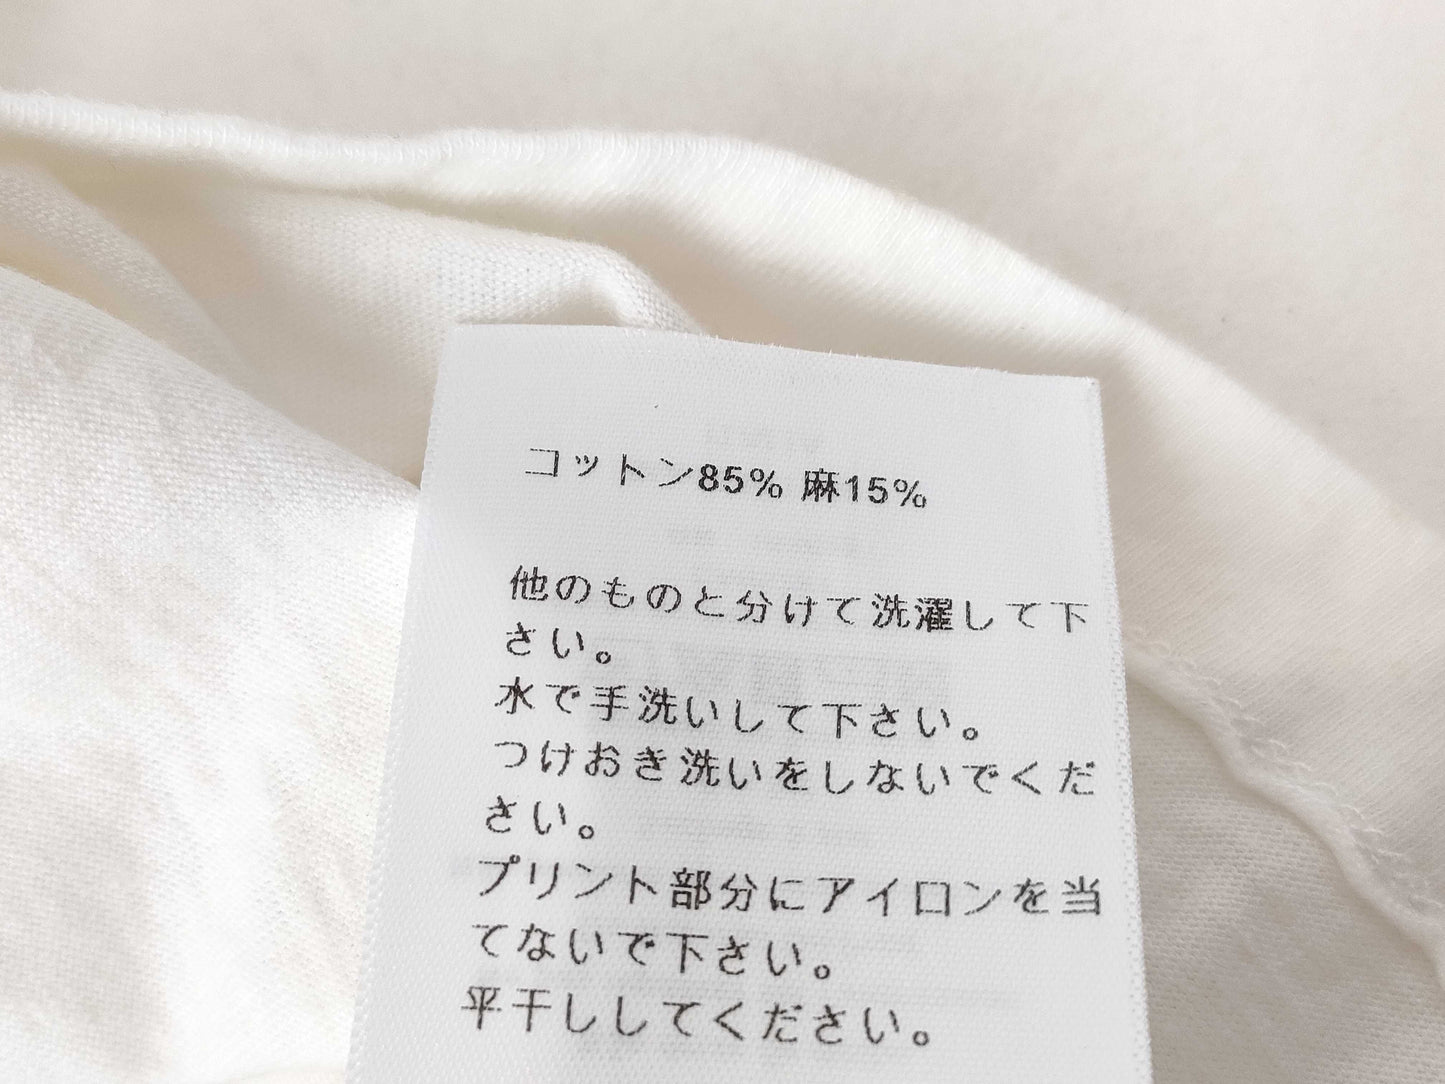 コットン85% 麻15%
他のものと分けて洗濯して下
さい。
水で手洗いして下さい。
つけおき洗いをしないでくだ
さい。
プリント部分にアイロンを当
てないで下さい。
平干ししてください。